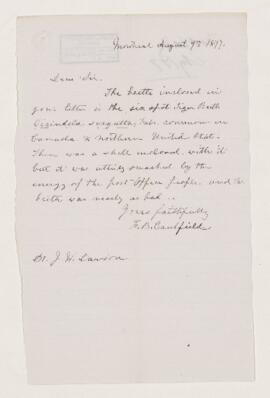 Montreal August 9th 1897.
Dear Sir.
The beetle inclosed in
your letter is the six spot Tiger Beetle
Cicindela sexguttata, Fab. common in
Canada & Northern United States.
There was a shell inclosed with it
but it was utterly smashed by the
energy of the post office people and the
beetle was nearly as bad.
Yours faithfully
F. B. Caulfield.
Dr. J. W. Dawson